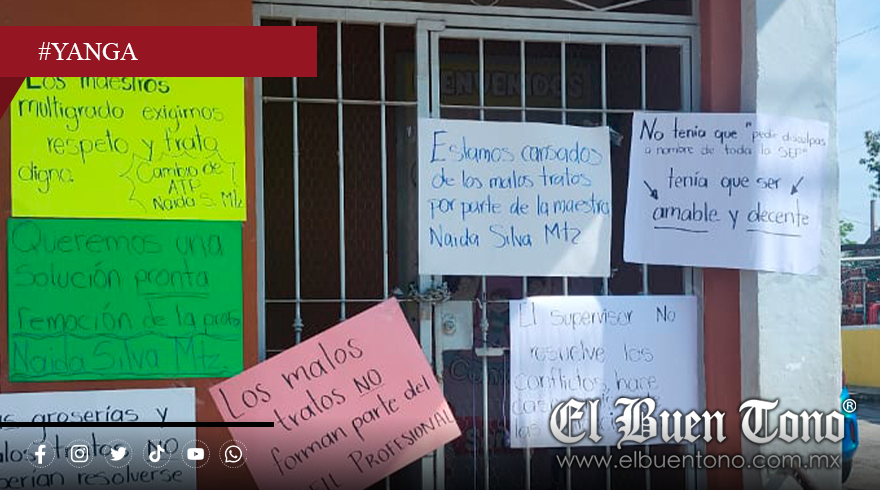 #YANGA
Los maestros
multigrado exigimos
respeto y trato
digno.
Cambio de
ATP
Naida S. Mtz
Queremos una
solución pronta
remoción de la profa
Naida Silva Mtz
as groserías y
los tratos NO
berían resolverse
Los malos
tratos NO
forman parte del
FIL PROFESIONAL
BIENVENIDOS
Estamos cansados
de los malos tratos
por parte de la maestra
Naida Silva Mtz
No tenía que "pedir disculpas
a nombre de toda la SEP"
tenía que ser
amable y decente
El supervisor No
resuelve los
conflictos, hace
caso
las
El Buen Tono®
www.elbuentono.com.mx